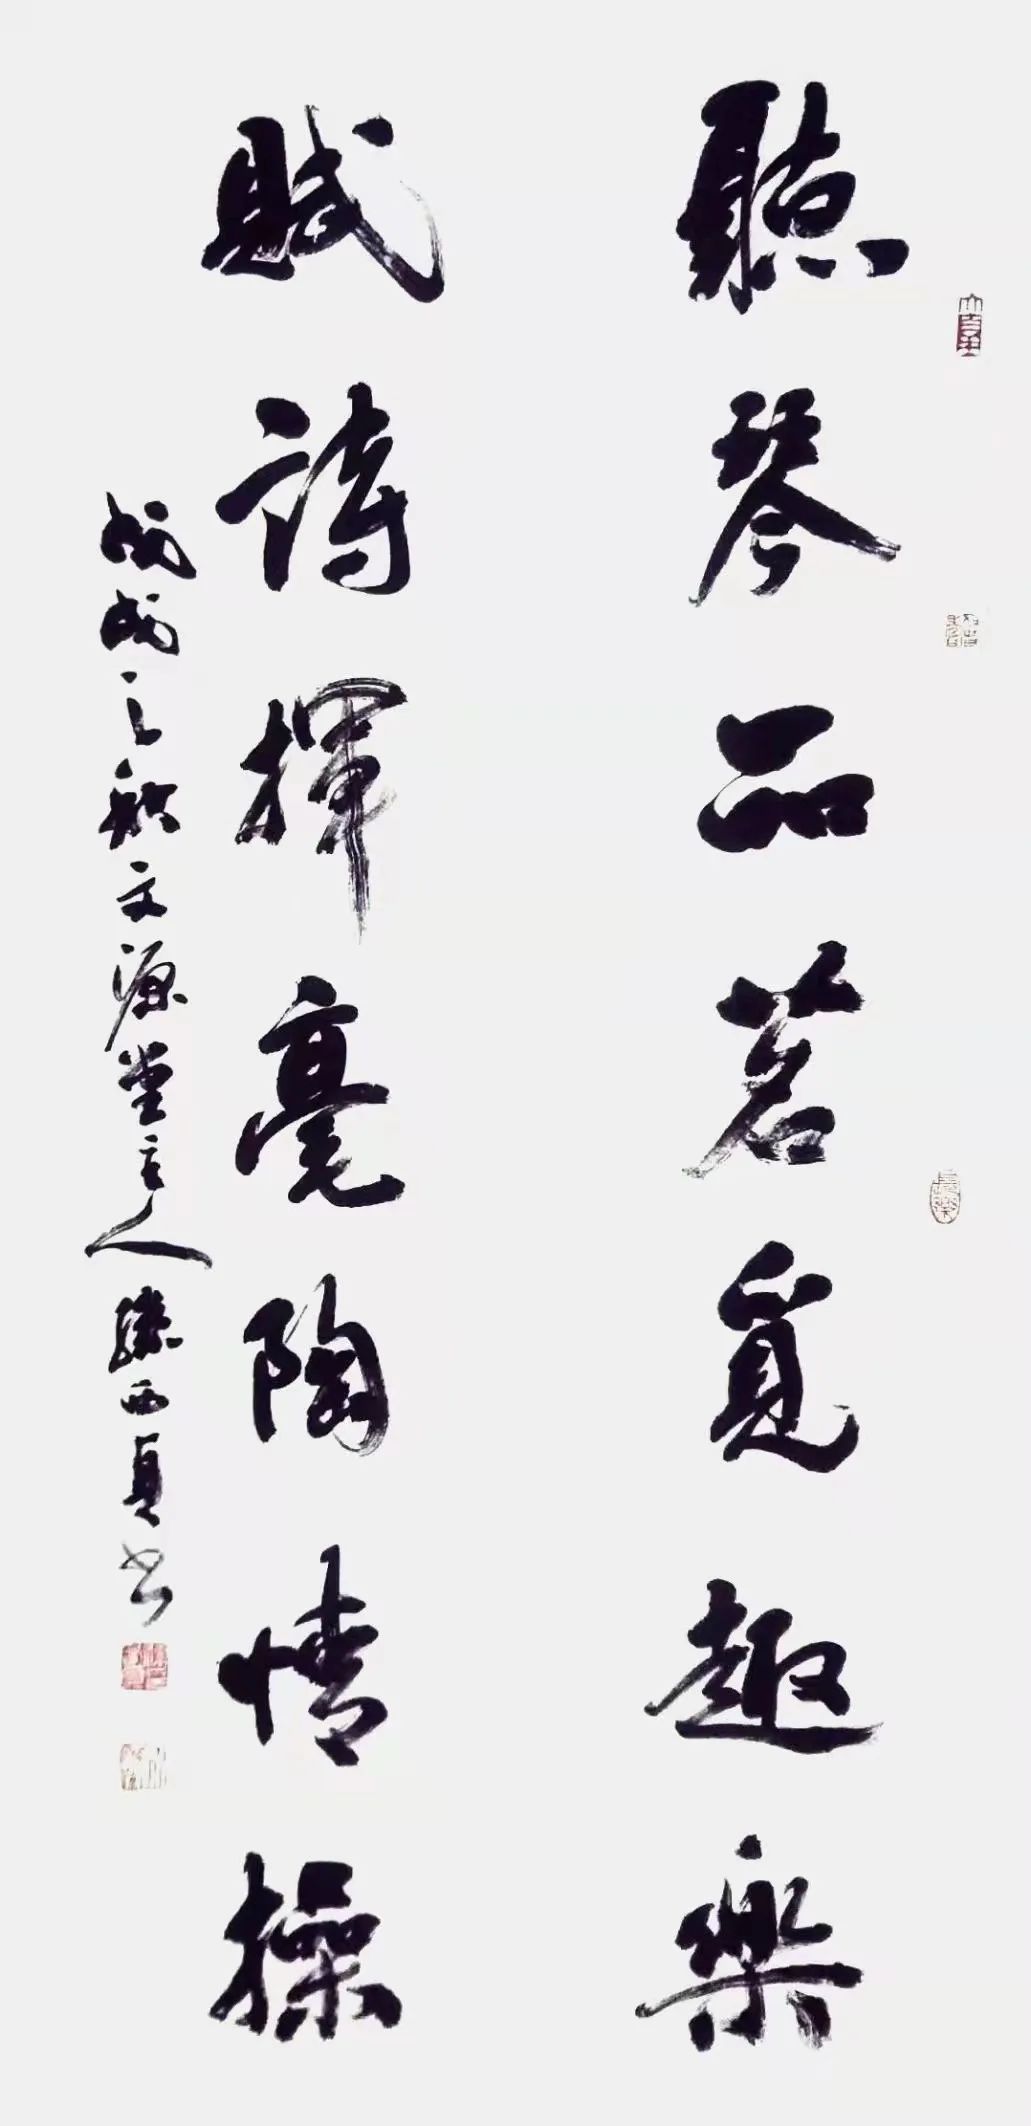 聽琴品茗覓趣樂
賦詩揮毫陶情操
戊戌之秋文源堂主人陳西貞書